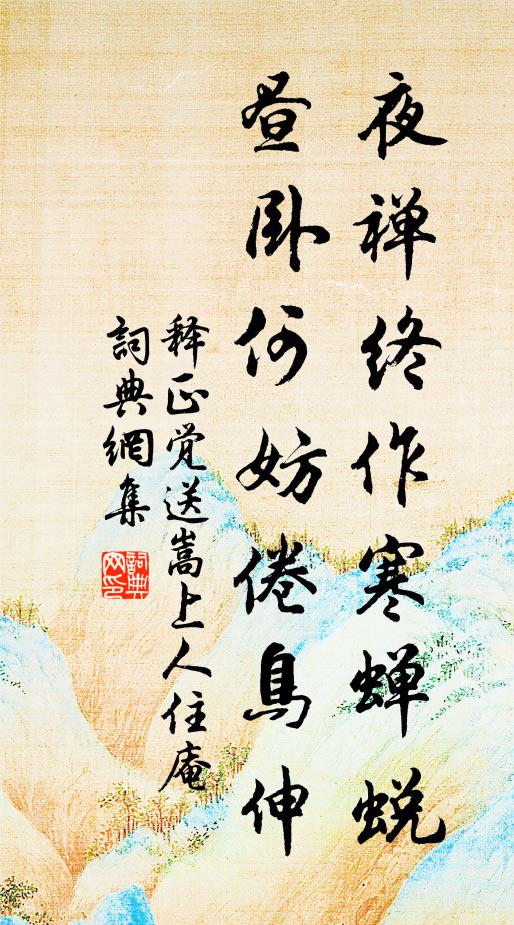 夜禅终作寒蝉蜕
昼卧何妨倦鸟伸
释正觉送嵩上人住庵
詞典網集
詞典網印